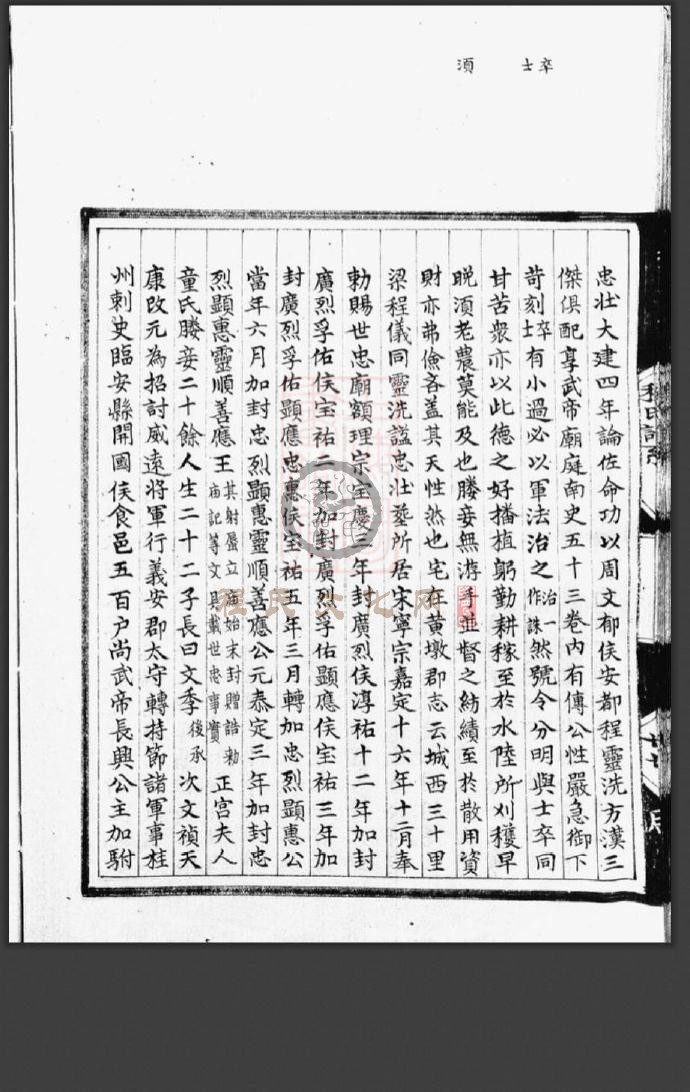 卒士
湏
忠壮大建四年論佐命功以周文郁侯安都程靈洗方漢三
傑俱配享武帝廟庭南史五十三卷内有傳公性嚴急御下
苛刻士卒有小過必以軍法治之治一作誅然號令分明與士卒同
甘苦衆亦以此德之好播植躬勤耕稼至於水陸所刈穫早
晚湏老農莫能及也媵妾無游手並督之紡績至於散用資
財亦弗儉吝盖其天性然也宅在黄墩郡志云城西三十里
梁程儀同靈洗謚忠壮塟所居宋寧宗嘉定十六年十二月奉
勅賜世忠廟額理宗宝慶三年封廣烈侯淳祐十二年加封
廣烈孚佑侯宝祐二年加封廣烈孚佑顯應侯宝祐三年加
封廣烈孚佑顯應忠惠侯宝祐五年三月轉加忠烈顯惠公
當年六月加封忠烈顯惠靈順善應公元泰定三年加封忠
烈顯惠靈順善應王其射蜃立廟始末封贈誥勅廟記等文具載世忠事實正宫夫人
童氏媵妾二十餘人生二十二子長曰文季後承次文禎天
康改元為招討威遠將軍行義安郡太守轉持節諸軍事桂
州刺史臨安縣開國侯食邑五百户尚武帝長興公主加駙
程氏文化网